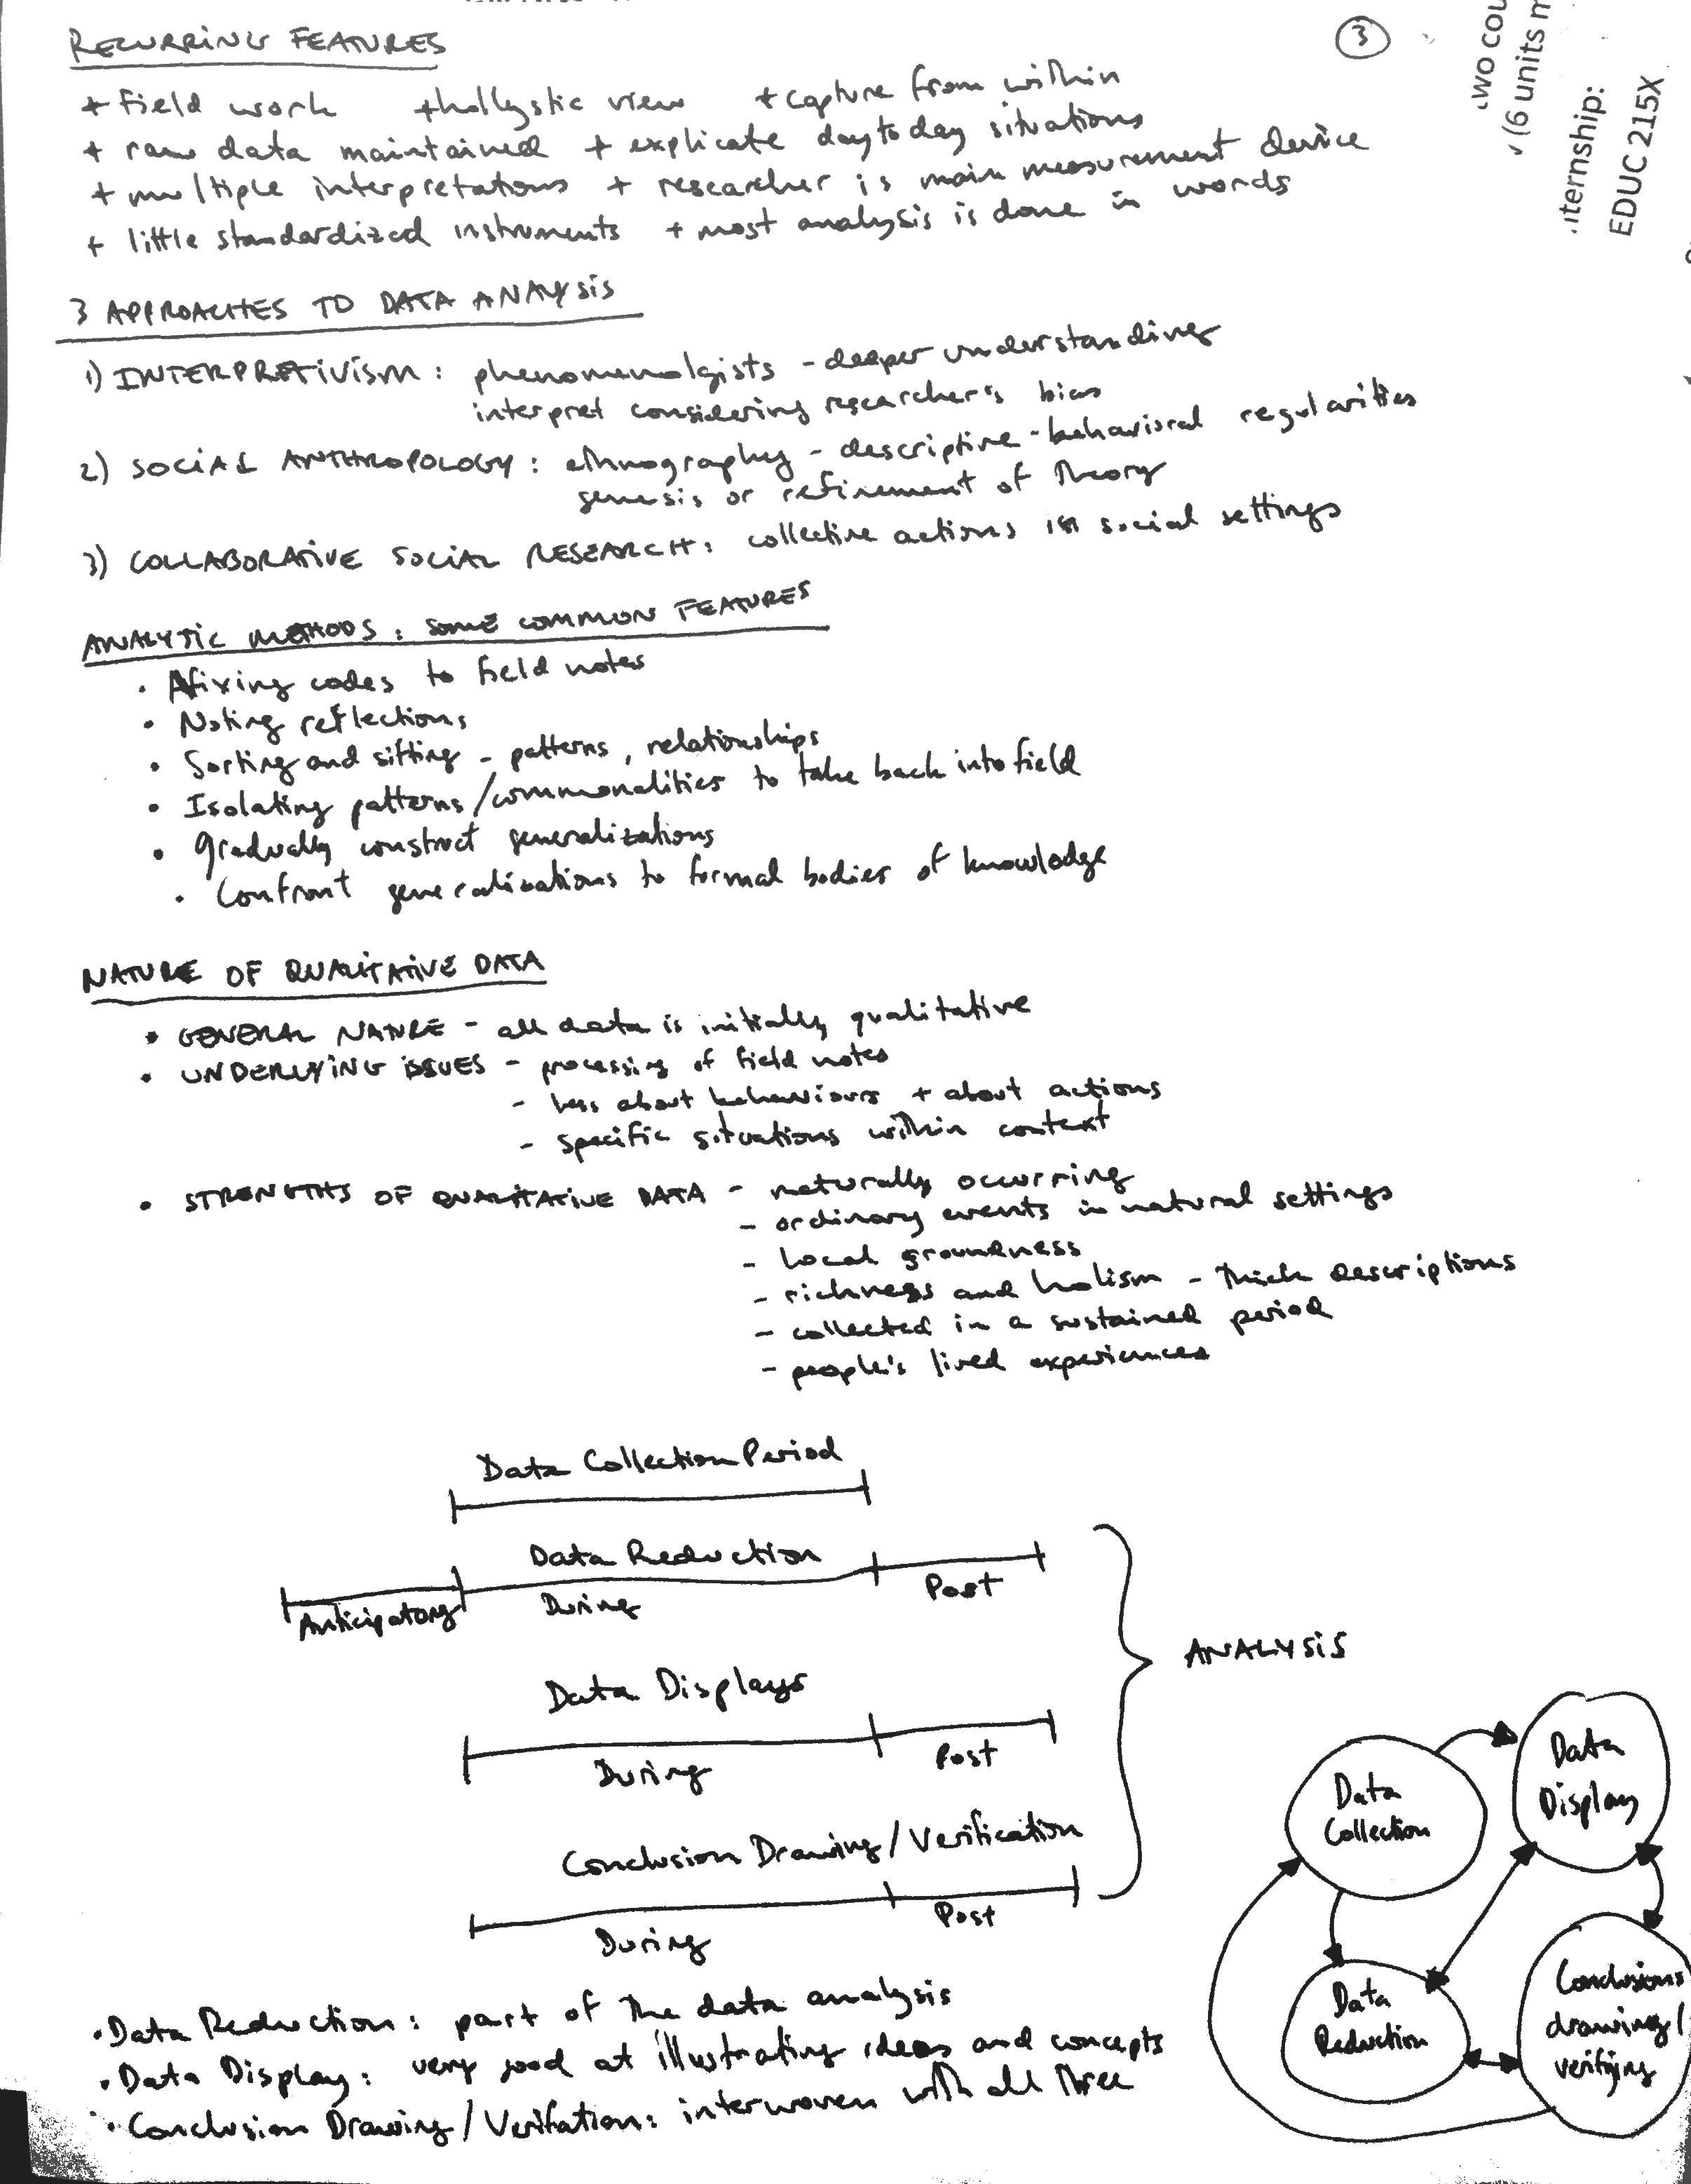 RECURRING FEATURES
3
+ field work + hollystic view + capture from within
+ raw data maintained + explicate day to day situations
+ multiple interpretations + researcher is main measurement device
+ little standardized instruments + most analysis is done in words
3 APPROACHES TO DATA ANALYSIS
1) INTERPRETIVISM: phenomenolgists - deeper understanding
interpret considering researcher's bias
2) SOCIAL ANTHROPOLOGY: ethnography - descriptive - behavioral regularities
genesis or refinement of theory
3) COLLABORATIVE SOCIAL RESEARCH: collective actions in social settings
ANALYTIC METHODS: SOME COMMON FEATURES
• Afixing codes to field notes
• Noting reflections
• Sorting and sifting - patterns, relationships
• Isolating patterns/commonalities to take back into field
• Gradually construct generalizations
• Confront generalizations to formal bodies of knowledge
NATURE OF QUALITATIVE DATA
• GENERAL NATURE - all data is initially qualitative
• UNDERLYING ISSUES - processing of field notes
- less about behaviours + about actions
- specific situations within context
• STRENGTHS OF QUALITATIVE DATA - naturally occurring
- ordinary events in natural settings
- local groundness
- richness and holism - thick descriptions
- collected in a sustained period
- people's lived experiences
Data Collection Period
Data Reduction
Anticipatory During Post
ANALYSIS
Data Displays
During Post
Conclusion Drawing/Verification
During Post
Data Collection
Data Display
Data Reduction
Conclusions drawing/verifying
• Data Reduction: part of the data analysis
• Data Display: very good at illustrating ideas and concepts
• Conclusion Drawing/Verifation: interwoven with all three
(6 units
EDUC 215X